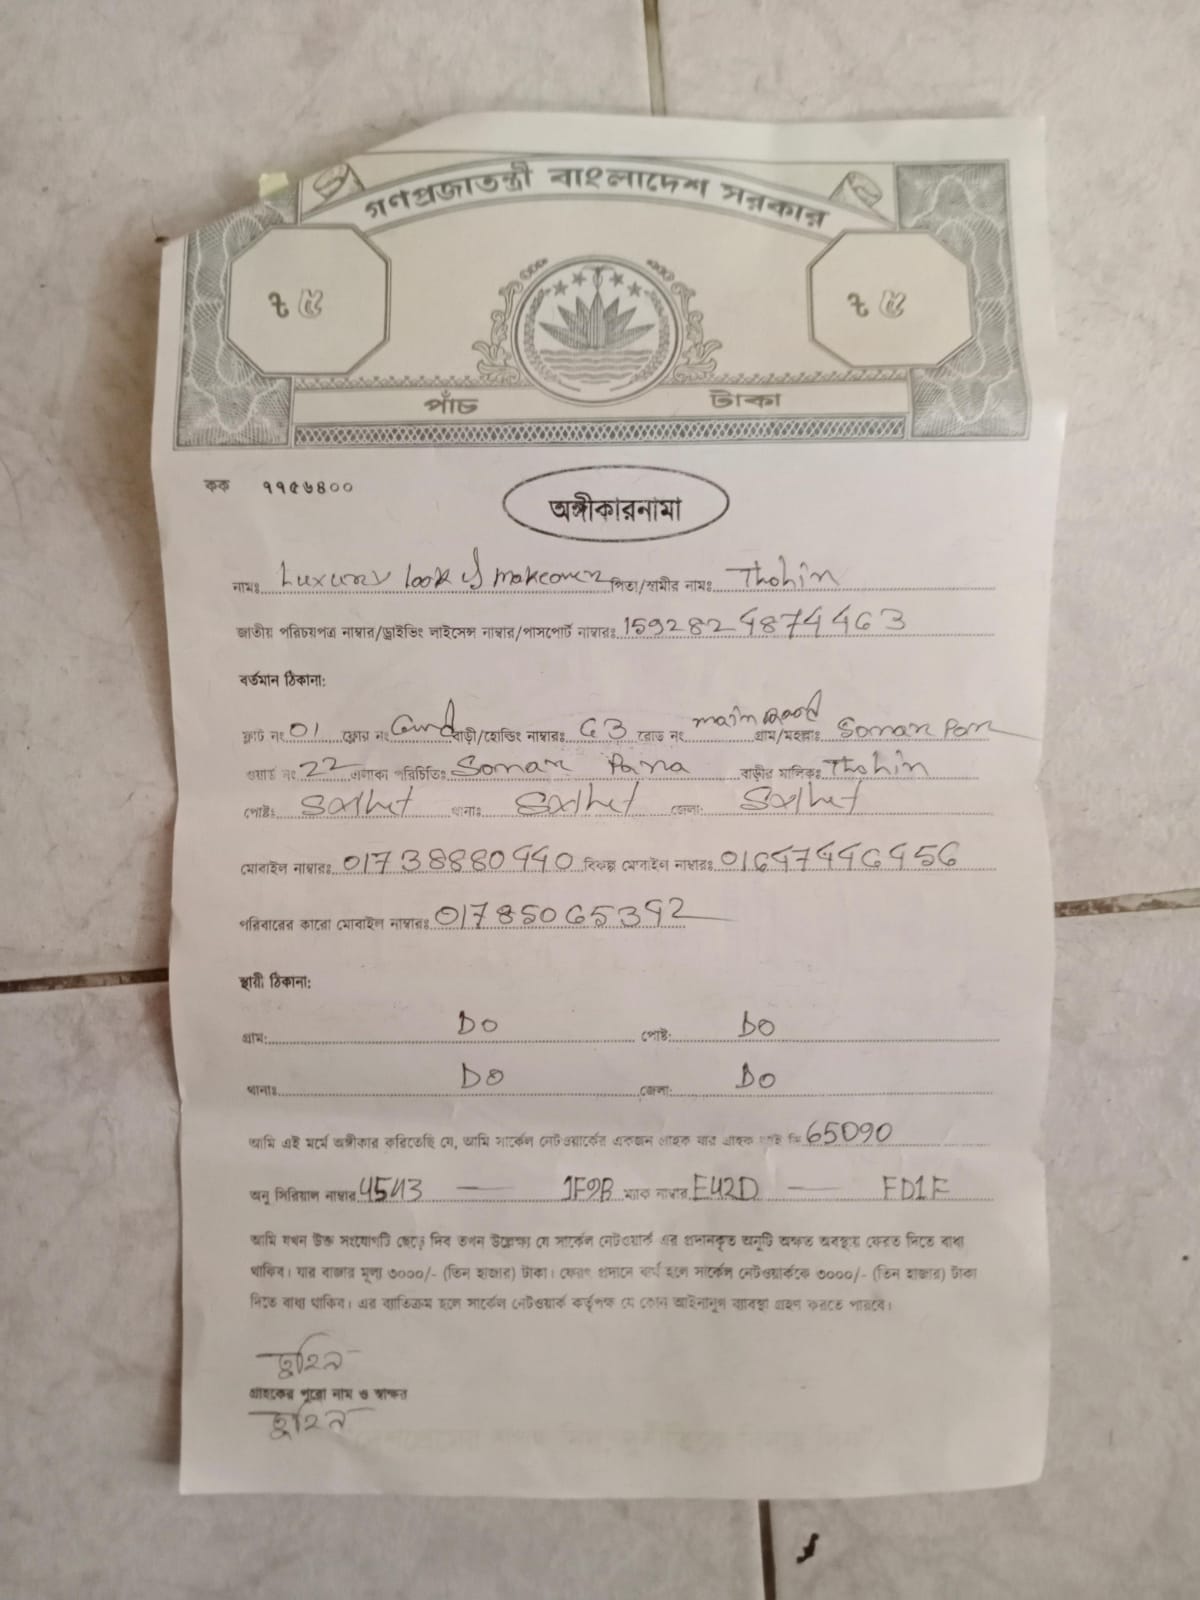 গণপ্রজাতন্ত্রী বাংলাদেশ সরকার
৳ ৫ ৳ ৫
পাঁচ টাকা
কক ৭৭৫৬৪০০
অঙ্গীকারনামা
নামঃ Luxury look & makeover পিতা/স্বামীর নামঃ Thohin
জাতীয় পরিচয়পত্র নাম্বার/ড্রাইভিং লাইসেন্স নাম্বার/পাসপোর্ট নাম্বারঃ 1592824874463
বর্তমান ঠিকানা:
ফ্লাট নং 01 ফ্লোর নং বাড়ী/হোল্ডিং নাম্বারঃ 63 রোড নং main Road গ্রাম/মহল্লাঃ Sonar Para
ওয়ার্ড নং 22 এলাকা পরিচিতিঃ Sonar Para বাড়ীর মালিকঃ Thohin
পোষ্টঃ Sylhet থানাঃ Sylhet জেলা: Sylhet
মোবাইল নাম্বারঃ 01738880440 বিকল্প মোবাইল নাম্বারঃ 01647446456
পরিবারের কারো মোবাইল নাম্বারঃ 01785065392
স্থায়ী ঠিকানা:
গ্রাম: DO পোষ্ট: DO
থানাঃ DO জেলা: DO
আমি এই মর্মে অঙ্গীকার করিতেছি যে, আমি সার্কেল নেটওয়ার্কের একজন গ্রাহক যার গ্রাহক আই ডি 65090
অনু সিরিয়াল নাম্বার 4543 — 1F9B ম্যাক নাম্বার E42D — FD1F
আমি যখন উক্ত সংযোগটি ছেড়ে দিব তখন উল্লেক্ষ্য যে সার্কেল নেটওয়ার্ক এর প্রদানকৃত অনুটি অক্ষত অবস্থায় ফেরত দিতে বাধ্য
থাকিব। যার বাজার মূল্য ৩০০০/- (তিন হাজার) টাকা। ফেরৎ প্রদানে ব্যর্থ হলে সার্কেল নেটওয়ার্ককে ৩০০০/- (তিন হাজার) টাকা
দিতে বাধ্য থাকিব। এর ব্যতিক্রম হলে সার্কেল নেটওয়ার্ক কর্তৃপক্ষ যে কোন আইনানুগ ব্যাবস্থা গ্রহণ করতে পারবে।
তুহিন
গ্রাহকের পুরো নাম ও স্বাক্ষর
তুহিন